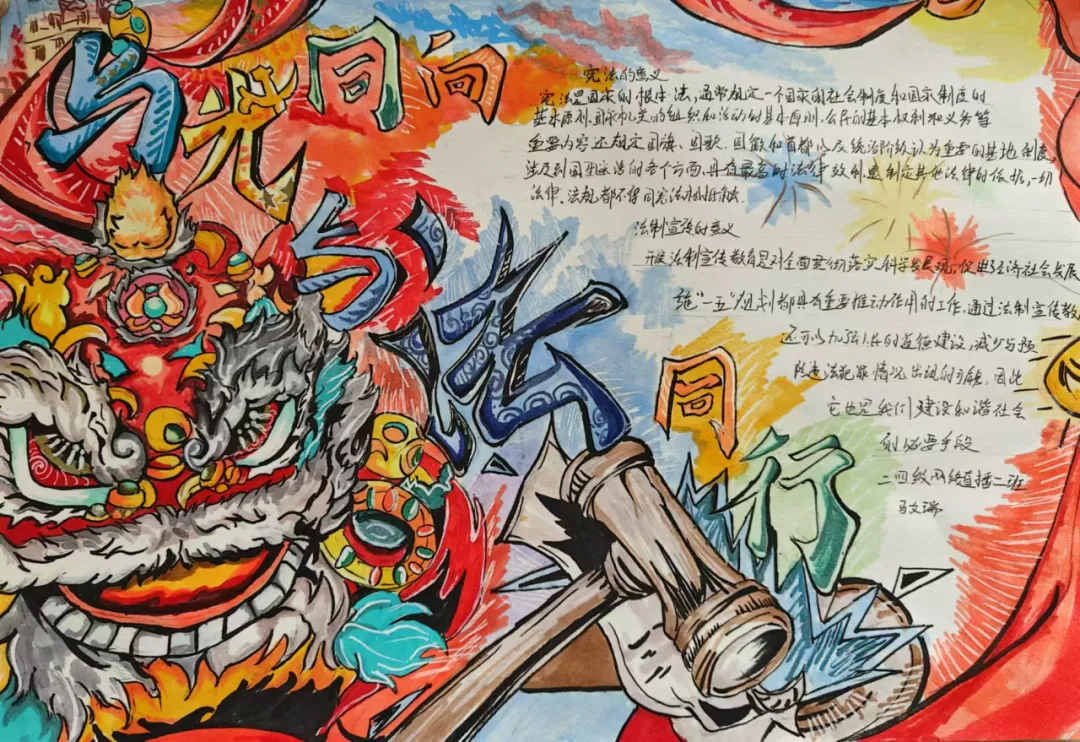 与光同向
与法同行
宪法的意义
宪法是国家的根本法,通常规定一个国家的社会制度和国家制度的
基本原则,国家机关的组织和活动的基本原则,公民的基本权利和义务等
重要内容还规定国旗、国歌、国徽和首都以及统治阶级认为重要的其他制度,
涉及到国家生活的各个方面,具有最高的法律效力,是制定其他法律的依据,一切
法律、法规都不得同宪法相抵触
法制宣传的意义
开展法制宣传教育是对全面贯彻落实科学发展观,促进经济社会发展
"一五"规划都具有重要推动作用的工作,通过法制宣传教
还可以加强人民的道德建设,减少与预
防违法犯罪情况出现的可能,因此
它也是我们建设和谐社会
的必要手段
二四级网络直播二班
马文瑞